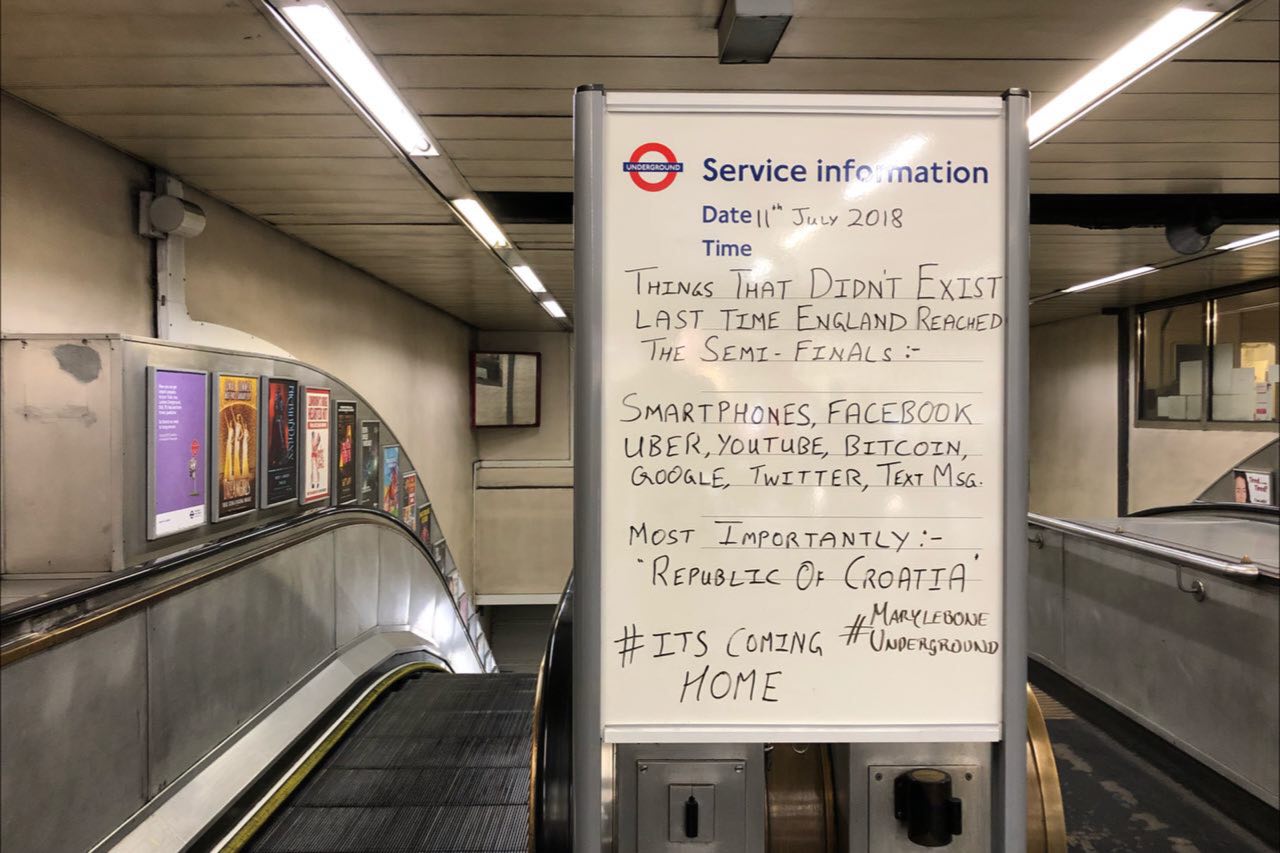 UNDERGROUND
Service information
Date 11th July 2018
Time
THINGS THAT DIDN'T EXIST
LAST TIME ENGLAND REACHED
THE SEMI-FINALS :-
SMARTPHONES, FACEBOOK
UBER, YOUTUBE, BITCOIN,
GOOGLE, TWITTER, TEXT MSG.
MOST IMPORTANTLY :-
"REPUBLIC OF CROATIA"
#ITS COMING
HOME
#MARYLEBONE
UNDERGROUND